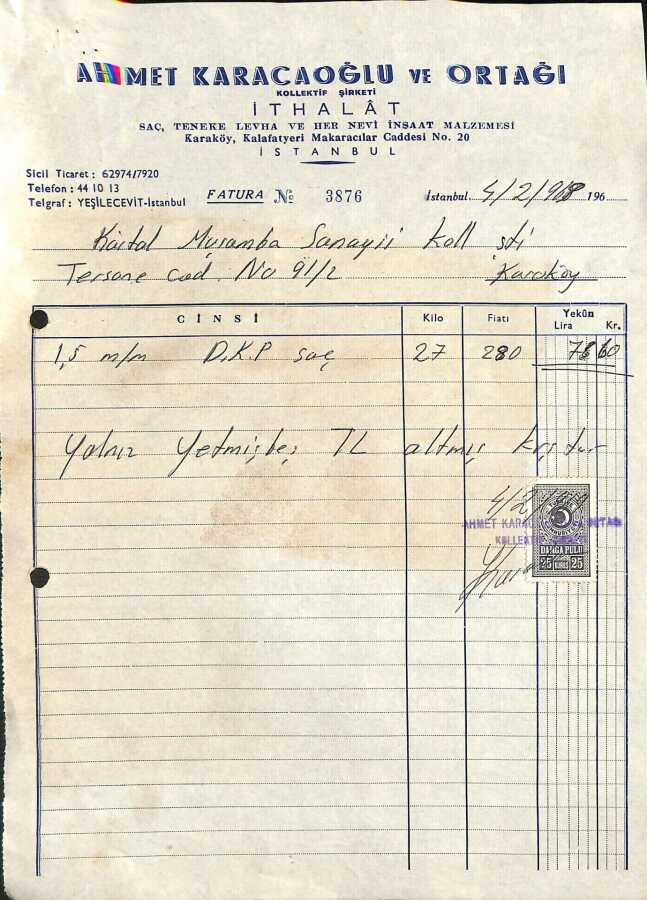 AHMET KARACAOĞLU VE ORTAĞI
KOLLEKTİF ŞİRKETİ
İTHALÂT
SAÇ, TENEKE LEVHA VE HER NEVİ İNŞAAT MALZEMESİ
Karaköy, Kalafatyeri Makaracılar Caddesi No. 20
İSTANBUL
Sicil Ticaret : 62974/7920
Telefon : 44 10 13
Telgraf : YEŞİLECEVİT-İstanbul
FATURA № 3876
İstanbul 4/2/968 196
Kartal Muşamba Sanayii Koll şti
Tersane cad. No 91/2 Karaköy
CİNSİ Kilo Fiatı Yekûn
Lira Kr.
1,5 m/m D.K.P saç 27 280 75 60
Yalnız Yetmişbeş TL altmış krş tur
4/2/968
AHMET KARACAOĞLU VE ORTAĞI
KOLLEKTİF ŞİRKETİ
DAMGA PULU
25 KURUŞ 25